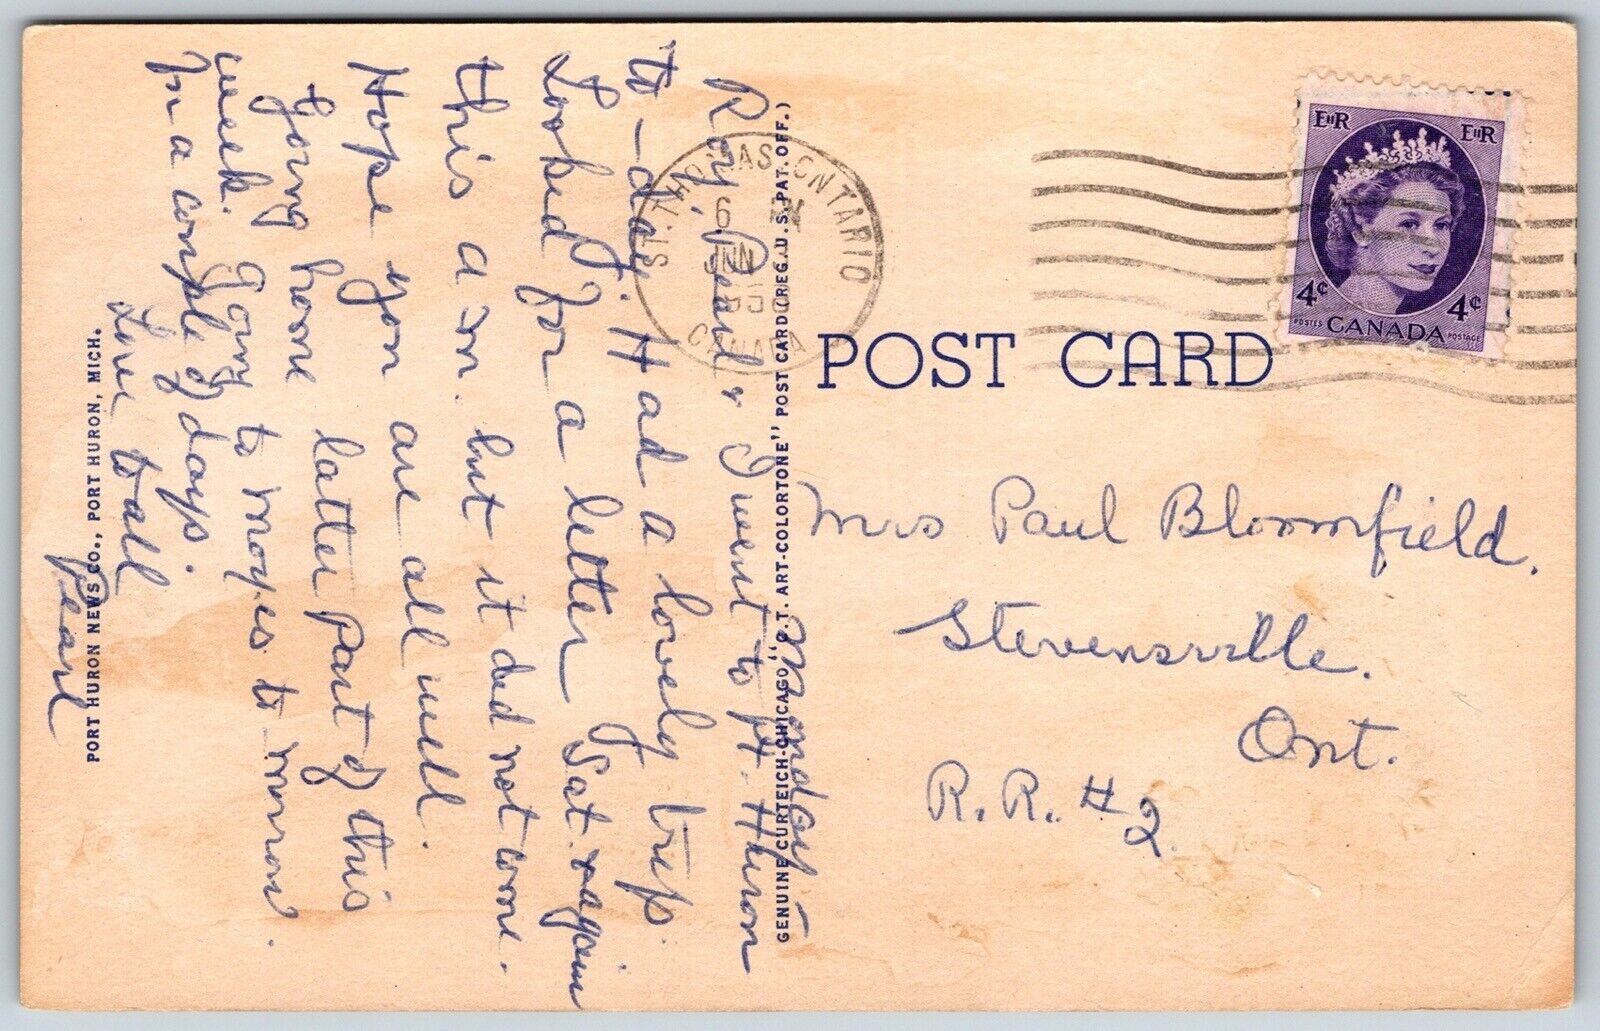 Monday
Roy, Pearl & I went to Pt. Huron
to-day. Had a lovely trip.
Looked for a letter Sat. & again
this a.m. but it did not come.
Hope you are all well.
Going home latter part of this
week. Going to Moyes to morrow.
In a couple of days.
Love to all
Pearl
PORT HURON NEWS CO., PORT HURON, MICH.
GENUINE CURTEICH-CHICAGO "C.T. ART-COLORTONE" POST CARD (REG. U.S. PAT. OFF.)
ST. THOMAS ONTARIO
CANADA
EIIR EIIR
4¢ 4¢
POSTES CANADA POSTAGE
POST CARD
Mrs Paul Bloomfield.
Stevensville.
Ont.
R.R. #2.